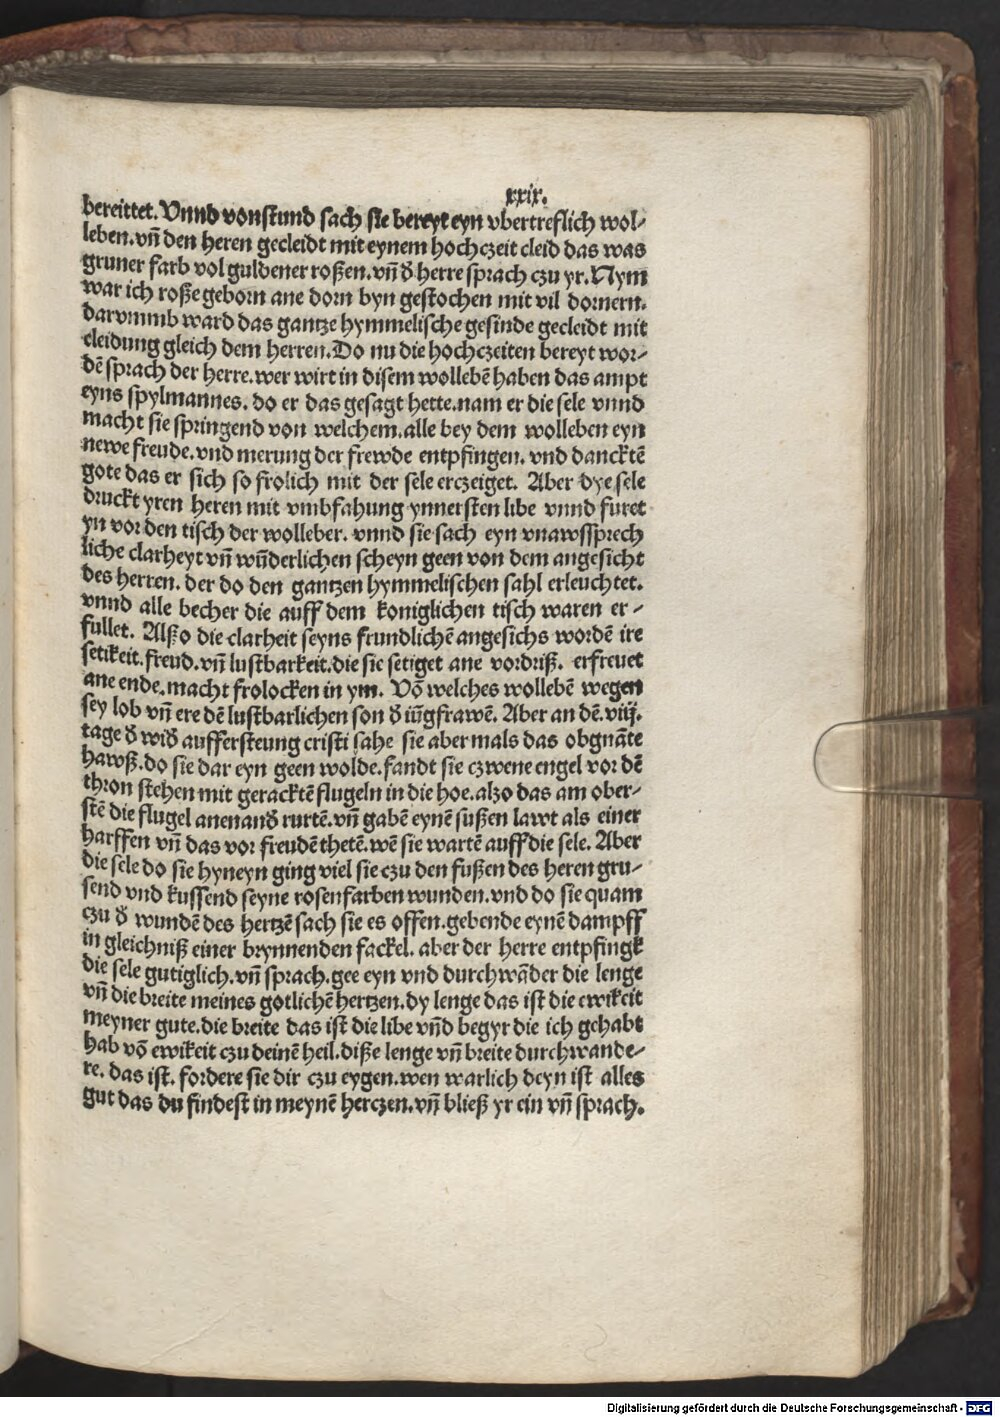 xxix.
bereittet. Vnnd von stund sach sie bereyt eyn vbertreflich wol-
leben. vn̄ den heren gecleidt mit eynem hochczeit cleid das was
gruner farb vol guldener roßen. vn̄ d̄ herre sprach czu yr. Nym
war ich roße geborn ane dorn byn gestochen mit vil dornern.
darvmmb ward das gantze hymmelische gesinde gecleidt mit
cleidung gleich dem herren. Do nu die hochczeiten bereyt wor-
dē sprach der herre. wer wirt in disem wollebē haben das ampt
eyns spylmannes. do er das gesagt hette. nam er die sele vnnd
macht sie springend von welchem. alle bey dem wolleben eyn
newe freude. vnd merung der frewde entpfingen. vnd dancktē
gote das er sich so frolich mit der sele erczeiget. Aber dye sele
druckt yren heren mit vmbfahung ynnersten libe vnnd furet
yn vor den tisch der wolleber. vnnd sie sach eyn vnawssprech
liche clarheyt vn̄ wūderlichen scheyn geen von dem angesicht
des herren. der do den gantzen hymmelischen sahl erleuchtet.
vnnd alle becher die auff dem koniglichen tisch waren er-
fullet. Alßo die clarheit seyns frundlichē angesichs wordē ire
setikeit. freud. vn̄ lustbarkeit. die sie setiget ane vordriß. erfreuet
ane ende. macht frolocken in ym. Vō welches wollebē wegen
sey lob vn̄ ere dē lustbarlichen son d̄ iūgfrawē. Aber an dē. viij.
tage d̄ wid̄ auffersteung cristi sahe sie aber mals das obgnāte
hawß. do sie dar eyn geen wolde. fandt sie czwene engel vor dē
thron stehen mit geracktē flugeln in die hoe. alzo das am ober-
stē die flugel anenand̄ rurtē. vn̄ gabē eynē sußen lawt als einer
harffen vn̄ das vor freudē thetē. wē sie wartē auff die sele. Aber
die sele do sie hyneyn ging viel sie czu den fußen des heren gru-
send vnd kussend seyne rosenfarben wunden. vnd do sie quam
czu d̄ wundē des hertzē sach sie es offen. gebende eynē dampff
in gleichniß einer brynnenden fackel. aber der herre entpfingk
die sele gutiglich. vn̄ sprach. gee eyn vnd durchwāder die lenge
vn̄ die breite meines gotlichē hertzen. dy lenge das ist die ewikeit
meyner gute. die breite das ist die libe vn̄d begyr die ich gehabt
hab vō ewikeit czu deinē heil. diße lenge vn̄ breite durchwande-
re. das ist. fordere sie dir czu eygen. wen warlich deyn ist alles
gut das du findest in meynē herczen. vn̄ bließ yr ein vn̄ sprach.
Digitalisierung gefördert durch die Deutsche Forschungsgemeinschaft - DFG